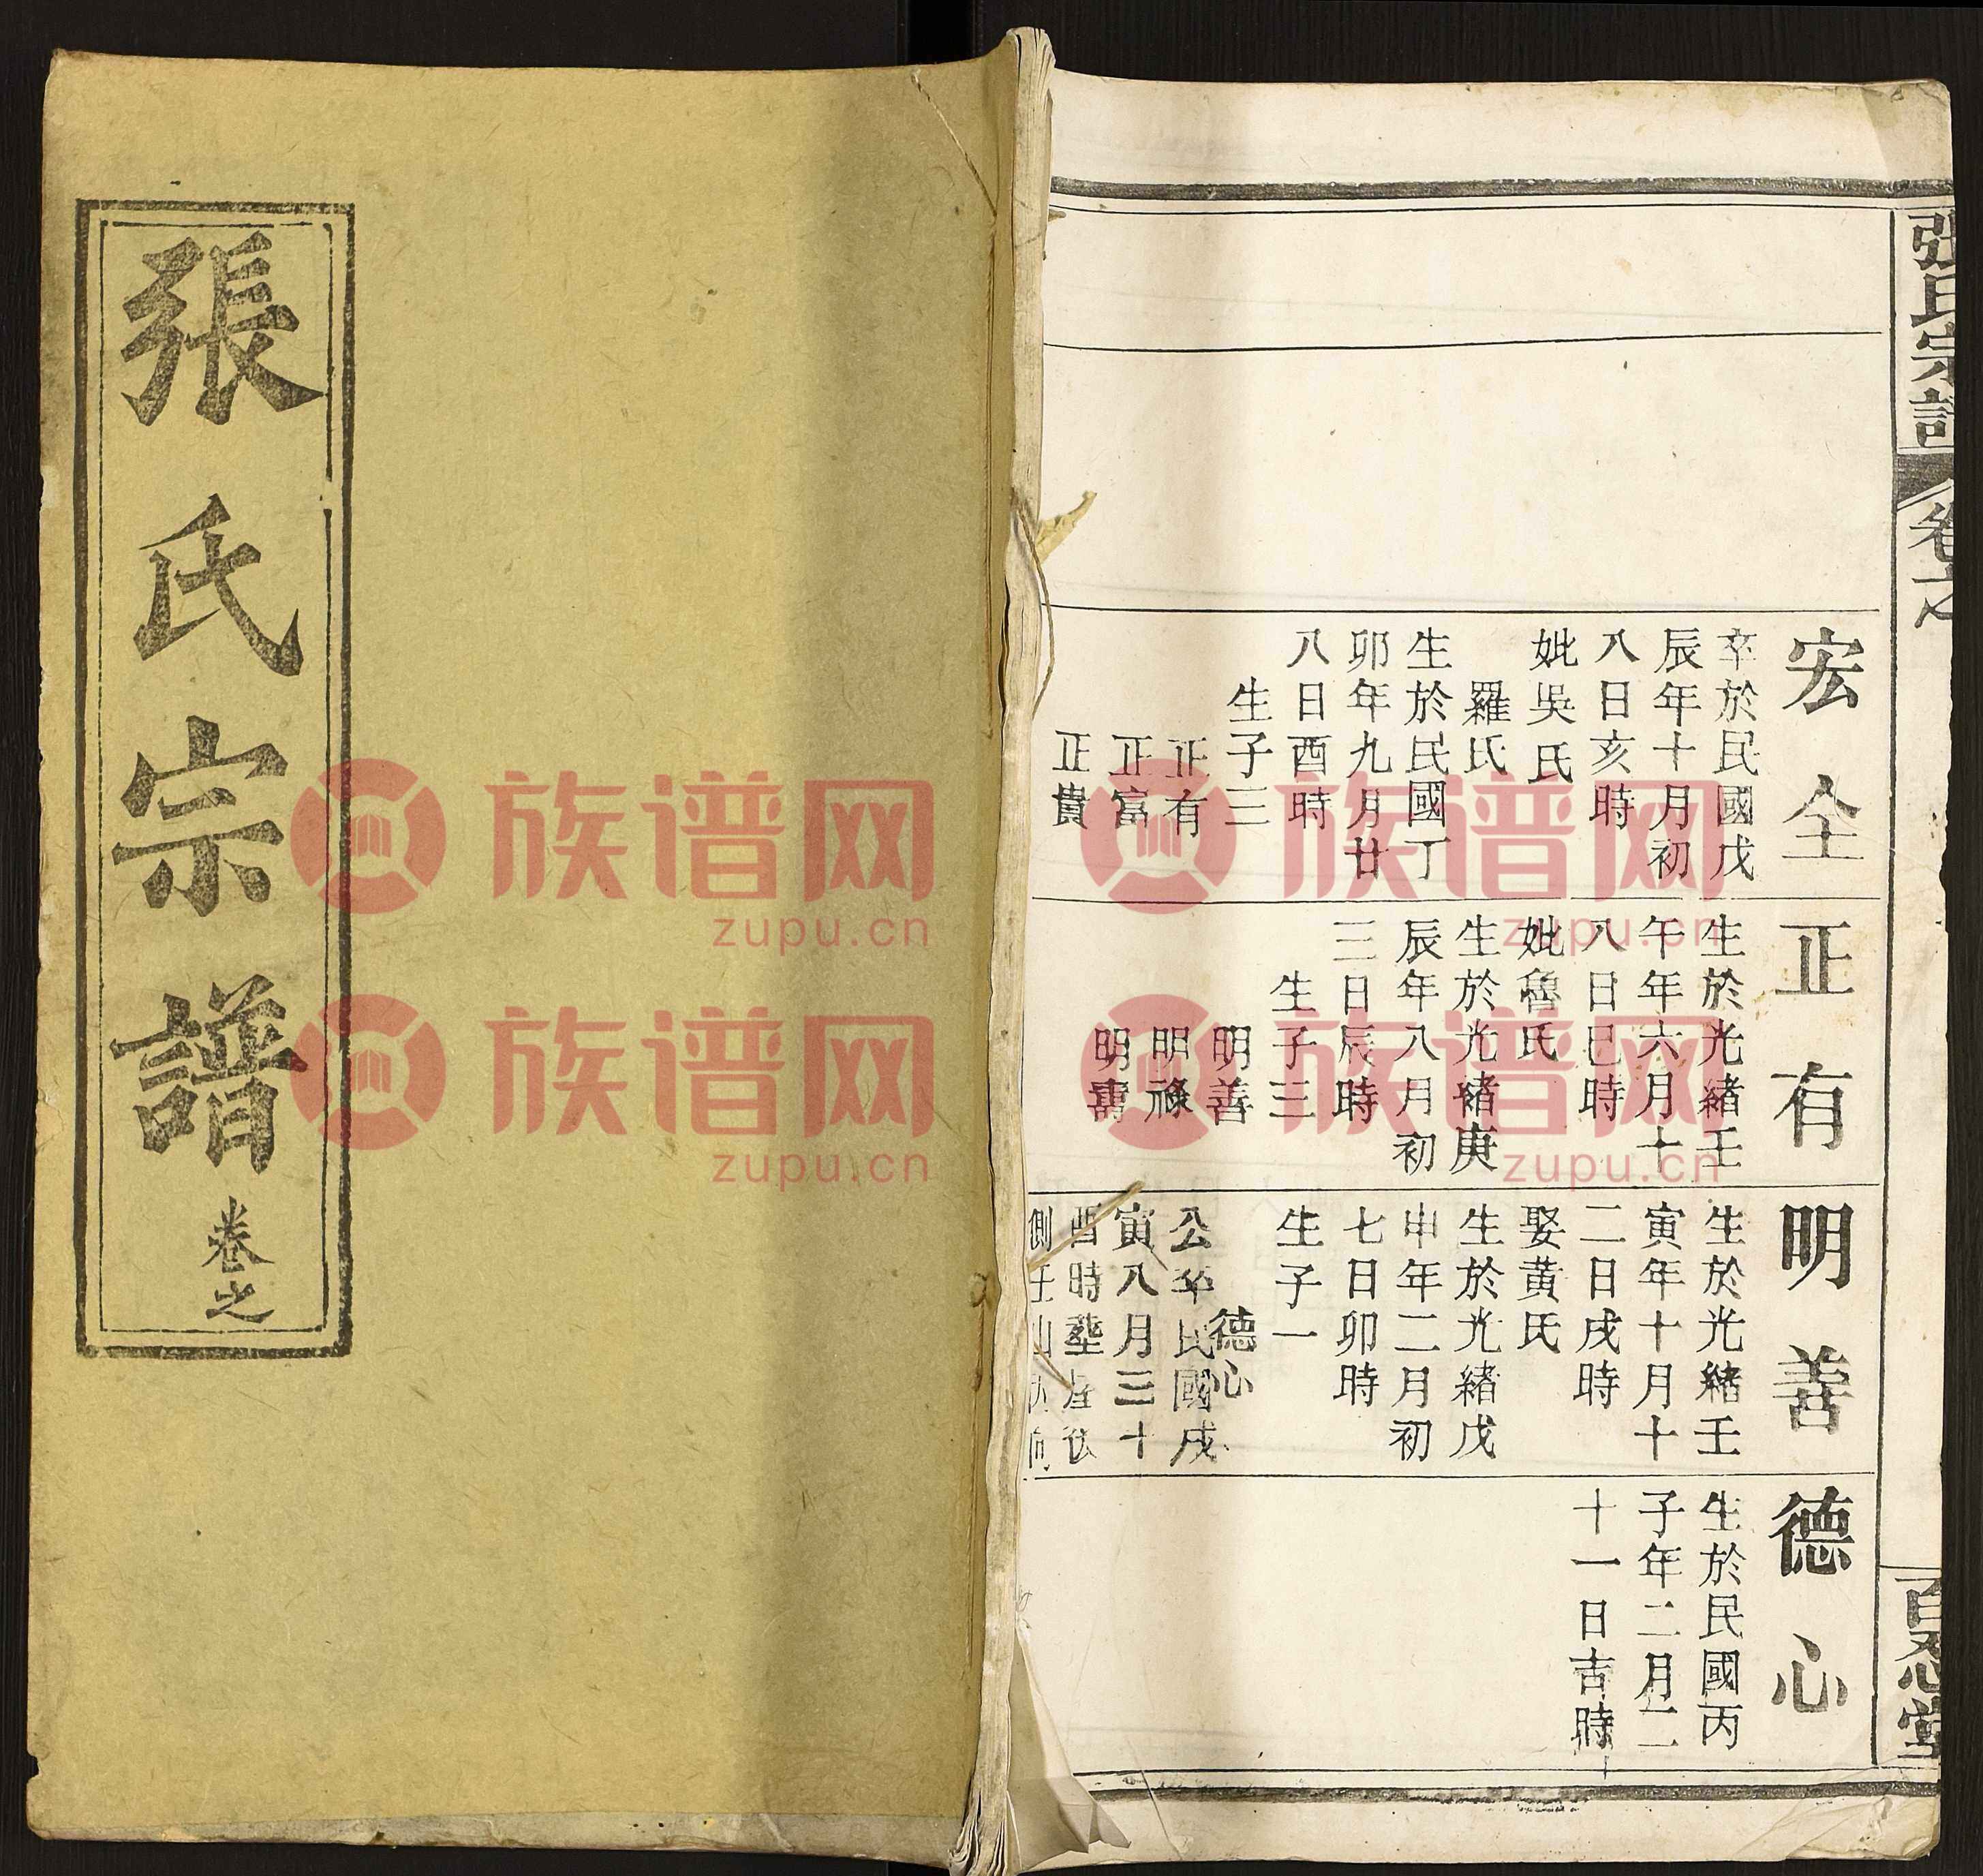 張氏宗譜
卷之
張氏宗譜
卷之
百忍堂
宏全
卒於民國戊
辰年十月初
八日亥時
妣吳氏
羅氏
生於民國丁
卯年九月廿
八日酉時
生子三
正有
正富
正貴
正有
生於光緒壬
午年六月十
八日巳時
妣魯氏
生於光緒庚
辰年八月初
三日辰時
生子三
明善
明祿
明壽
明善
生於光緒壬
寅年十月十
二日戌時
娶黃氏
生於光緒戊
申年二月初
七日卯時
生子一
德心
公卒民國戊
寅八月三十
酉時塟屋後
側
德心
生於民國丙
子年二月二
十一日吉時
族谱网
zupu.cn
族谱网
zupu.cn
族谱网
zupu.cn
族谱网
zupu.cn